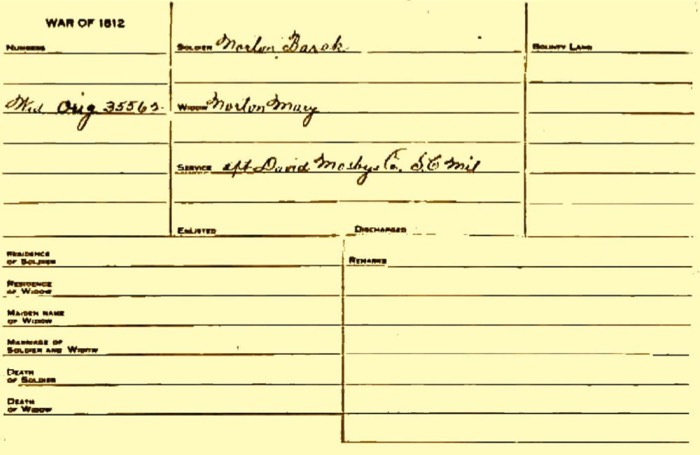 WAR OF 1812
NUMBERS
SOLDIER Norton Barak
BOUNTY LAND
Wid Orig 35562
WIDOW Norton Mary
SERVICE Capt David Mosbys Co. S.C Mil
ENLISTED
DISCHARGED
RESIDENCE
OF SOLDIER
REMARKS
RESIDENCE
OF WIDOW
MAIDEN NAME
OF WIDOW
MARRIAGE OF
SOLDIER AND WIDOW
DEATH
OF SOLDIER
DEATH
OF WIDOW